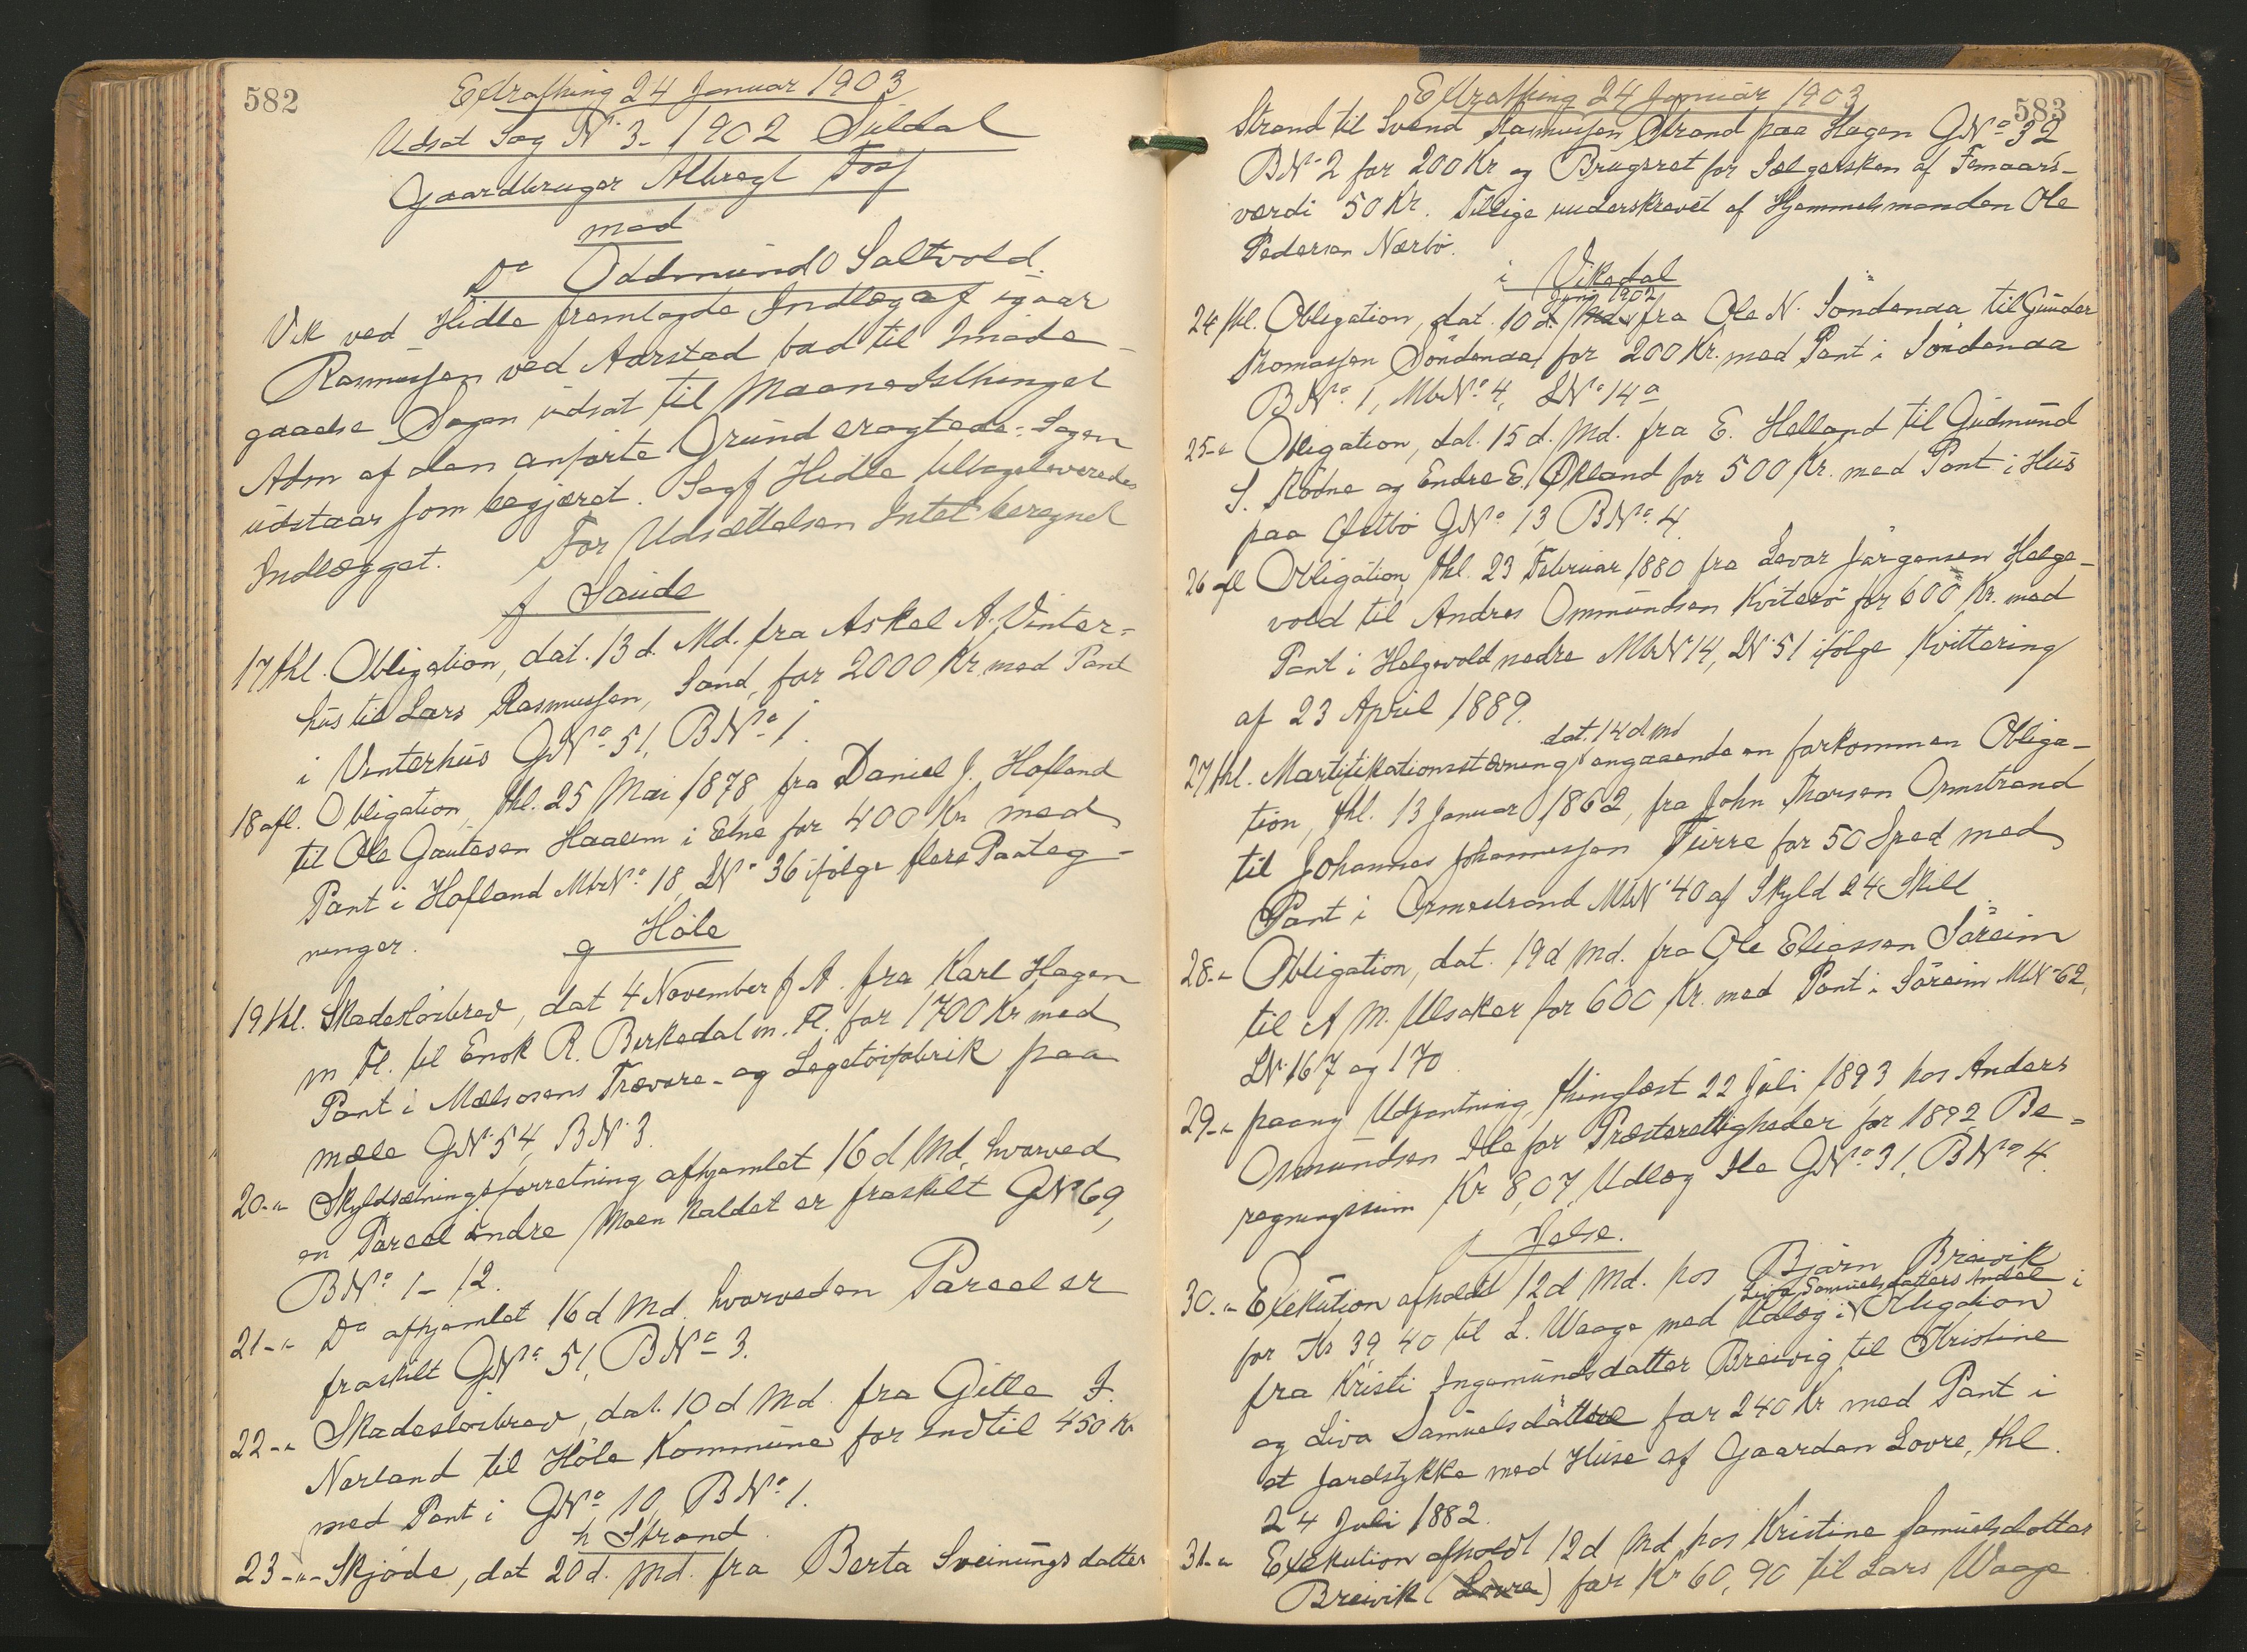 582
Extrathing 24 Januar 1903
Udsat Sag No 3 - 1902 Suldal
Gaardbruger Albregt Fosf
mod
Do Oddmund O Saltvold.
Vik ved Hidle fremlagde Indlæg af igaar
Rasmussen ved Aarstad bad til Imøde-
gaaelse Sagen udsat til Maanedsthinget
Adm af den anførte Grund eragtede: Sagen
udstaar som begjæret. Sagf Hidle tilbageleveredes
Indlægget. For Udsættelsen Intet beregnet
f Saude
17 thl. Obligation, dat. 13 d. Md. fra Askel A. Vinter-
hus til Lars Rasmussen, Sand, for 2000 Kr. med Pant
i Vinterhus GNo 51, BNo 1.
18 afl. Obligation, thl. 25 Mai 1878 fra Daniel J. Hofland
til Ole Gautesen Haaeim i Etne for 400 Kr med
Pant i Hofland MtrNo 18, LNo 36 ifølge flere Paateg-
ninger.
g Høle
19 thl. Skadesløsbrev, dat 4 November f A. fra Karl Hagen
m Fl. til Enok R. Berkedal m. Fl. for 1700 Kr med
Pant i Mælsosens Trævare- og Legetøifabrik paa
Mæle GNo 54, BNo 3.
20 -"- Skyldsætningsforretning afhjemlet 16 d Md, hvorved
en Parcel indre Moen kaldet er fraskilt GNo 69,
BNo 1 - 12.
21 -"- Do afhjemlet 16 d Md. hvorved en Parcel er
fraskilt GNo 51, BNo 3.
22 -"- Skadesløsbrev, dat. 10 d Md. fra Gitle J.
Nerland til Høle Kommune for indtil 450 Kr
med Pant i GNo 10, BNo 1.
h Strand
23 -"- Skjøde, dat 20 d. Md. fra Berta Sveinungsdatter
583
Extrathing 24 Januar 1903
Strand til Svend Rasmussen Strand paa Hagen GNo 32
BNo 2 for 200 Kr og Brugsret for Sælgersken af Femaars-
værdi 50 Kr. Tillige underskrevet af Hjemmelsmanden Ole
Pedersen Nærbø.
i Vikedal
Juni 1902
24 thl. Obligation, dat. 10 d. Md. fra Ole N. Søndenaa til Gunder
Thomassen Søndenaa for 200 Kr. med Pant i Søndenaa
BNo 1, MtrNo 4, LNo 14a
25 -"- Obligation, dat. 15 d. Md. fra E. Helland til Gudmund
S. Rødne og Endre E. Økland for 500 Kr. med Pant i Hus
paa Østbø GNo 13, BNo 4.
26 afl Obligation, thl. 23 Februar 1880 fra Levar Jørgensen Helge-
vold til Andres Ommundsen Kviterø for 600 Kr. med
Pant i Helgevold nedre MtrNo 14, LNo 51 ifølge Kvittering
af 23 April 1889.
dat. 14 d Md
27 thl. Mortifikationsstævning angaaende en forkommen Obliga-
tion, thl. 13 Januar 1862, fra John Thorsen Ormstrand
til Johannes Johannessen Tuirre for 50 Spd med
Pant i Ormestrand MtrNo 40 af Skyld 24 Skill.
28 -"- Obligation, dat. 19 d Md. fra Ole Eliassen Søreim
til A M. Ulsaker for 600 Kr. med Pant i Søreim MtrNo 62,
LNo 167 og 170.
29 -"- paany Udpantning, thinglæst 22 Juli 1893 hos Anders
Osmundsen Ile for Præsterettigheder for 1892, Be-
regningssum Kr 8,07, Udlæg Ile GNo 31, BNo 4.
j Jelse.
30 -"- Exekution afholdt 12 d Md. hos Bjørn Breivik
Liva Samuelsdatters Andel i
for Kr 39,40 til L. Waage med Udlæg i Obligation
fra Kristi Ingemundsdatter Breivig til Kristine
og Liva Samuelsdatter for 240 Kr med Pant i
et Jordstykke med Huse af Gaarden Lovre, thl.
24 Juli 1882.
31 -"- Exekution afholdt 12 d Md hos Kristine Samuelsdatter
Breivik (Lovra) for Kr 60,90 til Lars Waage